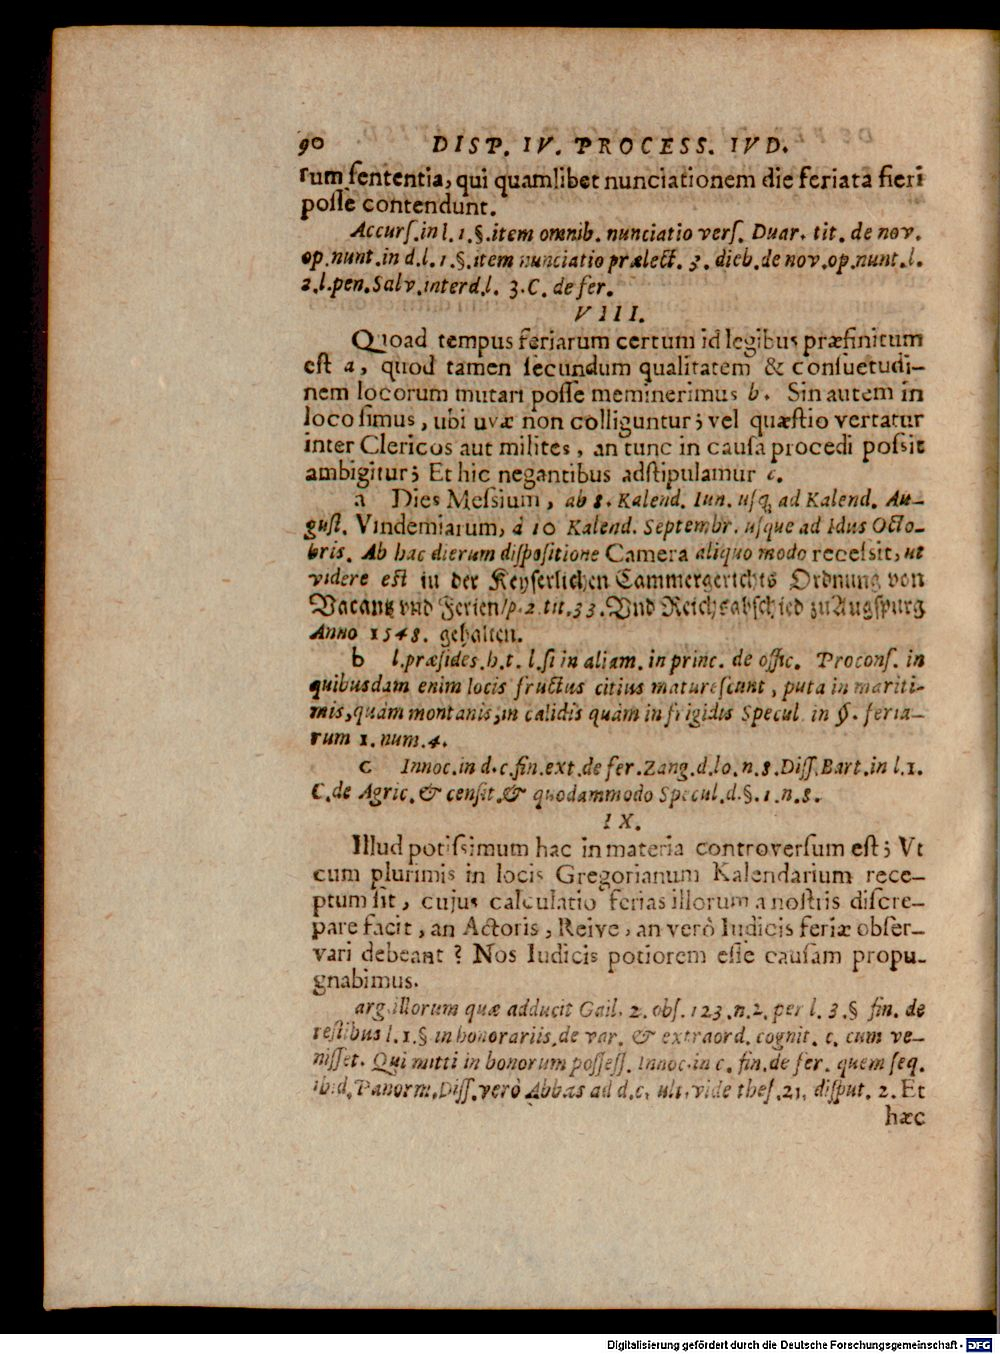 90 DISP. IV. PROCESS. IVD.
rum sententia, qui quamlibet nunciationem die feriata fieri
posse contendunt.
Accurs. in l. 1. §. item omnib. nunciatio vers. Duar. tit. de nov.
op. nunt. in d. l. 1. §. item nunciatio prælect. 3. dieb. de nov. op. nunt. l.
2. l. pen. Salv. interd. l. 3. C. de fer.
VIII.
Quoad tempus feriarum certum id legibus præfinitum
est a, quod tamen secundum qualitatem & consuetudi-
nem locorum mutari posse meminerimus b. Sin autem in
loco simus, ubi uvæ non colliguntur; vel quæstio vertatur
inter Clericos aut milites, an tunc in causa procedi possit
ambigitur; Et hic negantibus adstipulamur c.
a Dies Messium, ab 8. Kalend. Iun. usq; ad Kalend. Au-
gust. Vindemiarum, à 10 Kalend. Septembr. usque ad Idus Octo-
bris. Ab hac dierum dispositione Camera aliquo modo recessit, ut
videre est in der Keyserlichen Cammergerichts Ordnung von
Vacantz vnd Ferien/ p. 2. tit. 33. Vnd Reichsabschied zu Augspurg
Anno 1548. gehalten.
b l. præsides. h. t. l. si in aliam. in princ. de offic. Procons. in
quibusdam enim locis fructus citius maturescunt, puta in mariti-
mis, quàm montanis, in calidis quàm in frigidis Specul. in §. feria-
rum 1. num. 4.
c Innoc. in d. c. fin. ext. de fer. Zang. d. lo. n. 8. Diss. Bart. in l. 1.
C. de Agric. & censit. & quodammodo Specul. d. §. 1. n. 8.
IX.
Illud potissimum hac in materia controversum est; Vt
cum plurimis in locis Gregorianum Kalendarium rece-
ptum sit, cujus calculatio ferias illorum a nostris discre-
pare facit, an Actoris, Reive, an verò Iudicis feriæ obser-
vari debeant? Nos Iudicis potiorem esse causam propu-
gnabimus.
arg. illorum quæ adducit Gail. 2. obs. 123. n. 2. per l. 3. § fin. de
testibus l. 1. § in honorariis, de var. & extraord. cognit. c. cum ve-
nisset. Qui mitti in bonorum possess. Innoc. in c. fin. de fer. quem seq.
ibid. Panorm. Diss. verò Abbas ad d. c. ult. vide thes. 21. disput. 2. Et
hæc
Digitalisierung gefördert durch die Deutsche Forschungsgemeinschaft - DFG